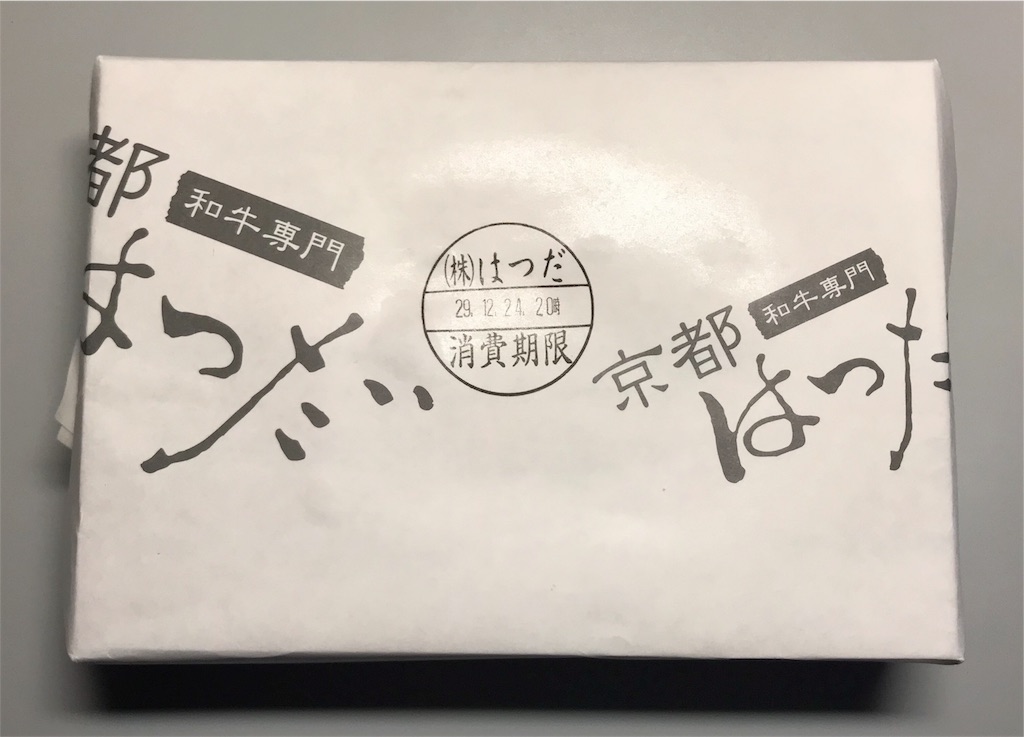 都
和牛専門
はつだ
(株)はつだ
29.12.24.20時
消費期限
和牛専門
京都
はつだ